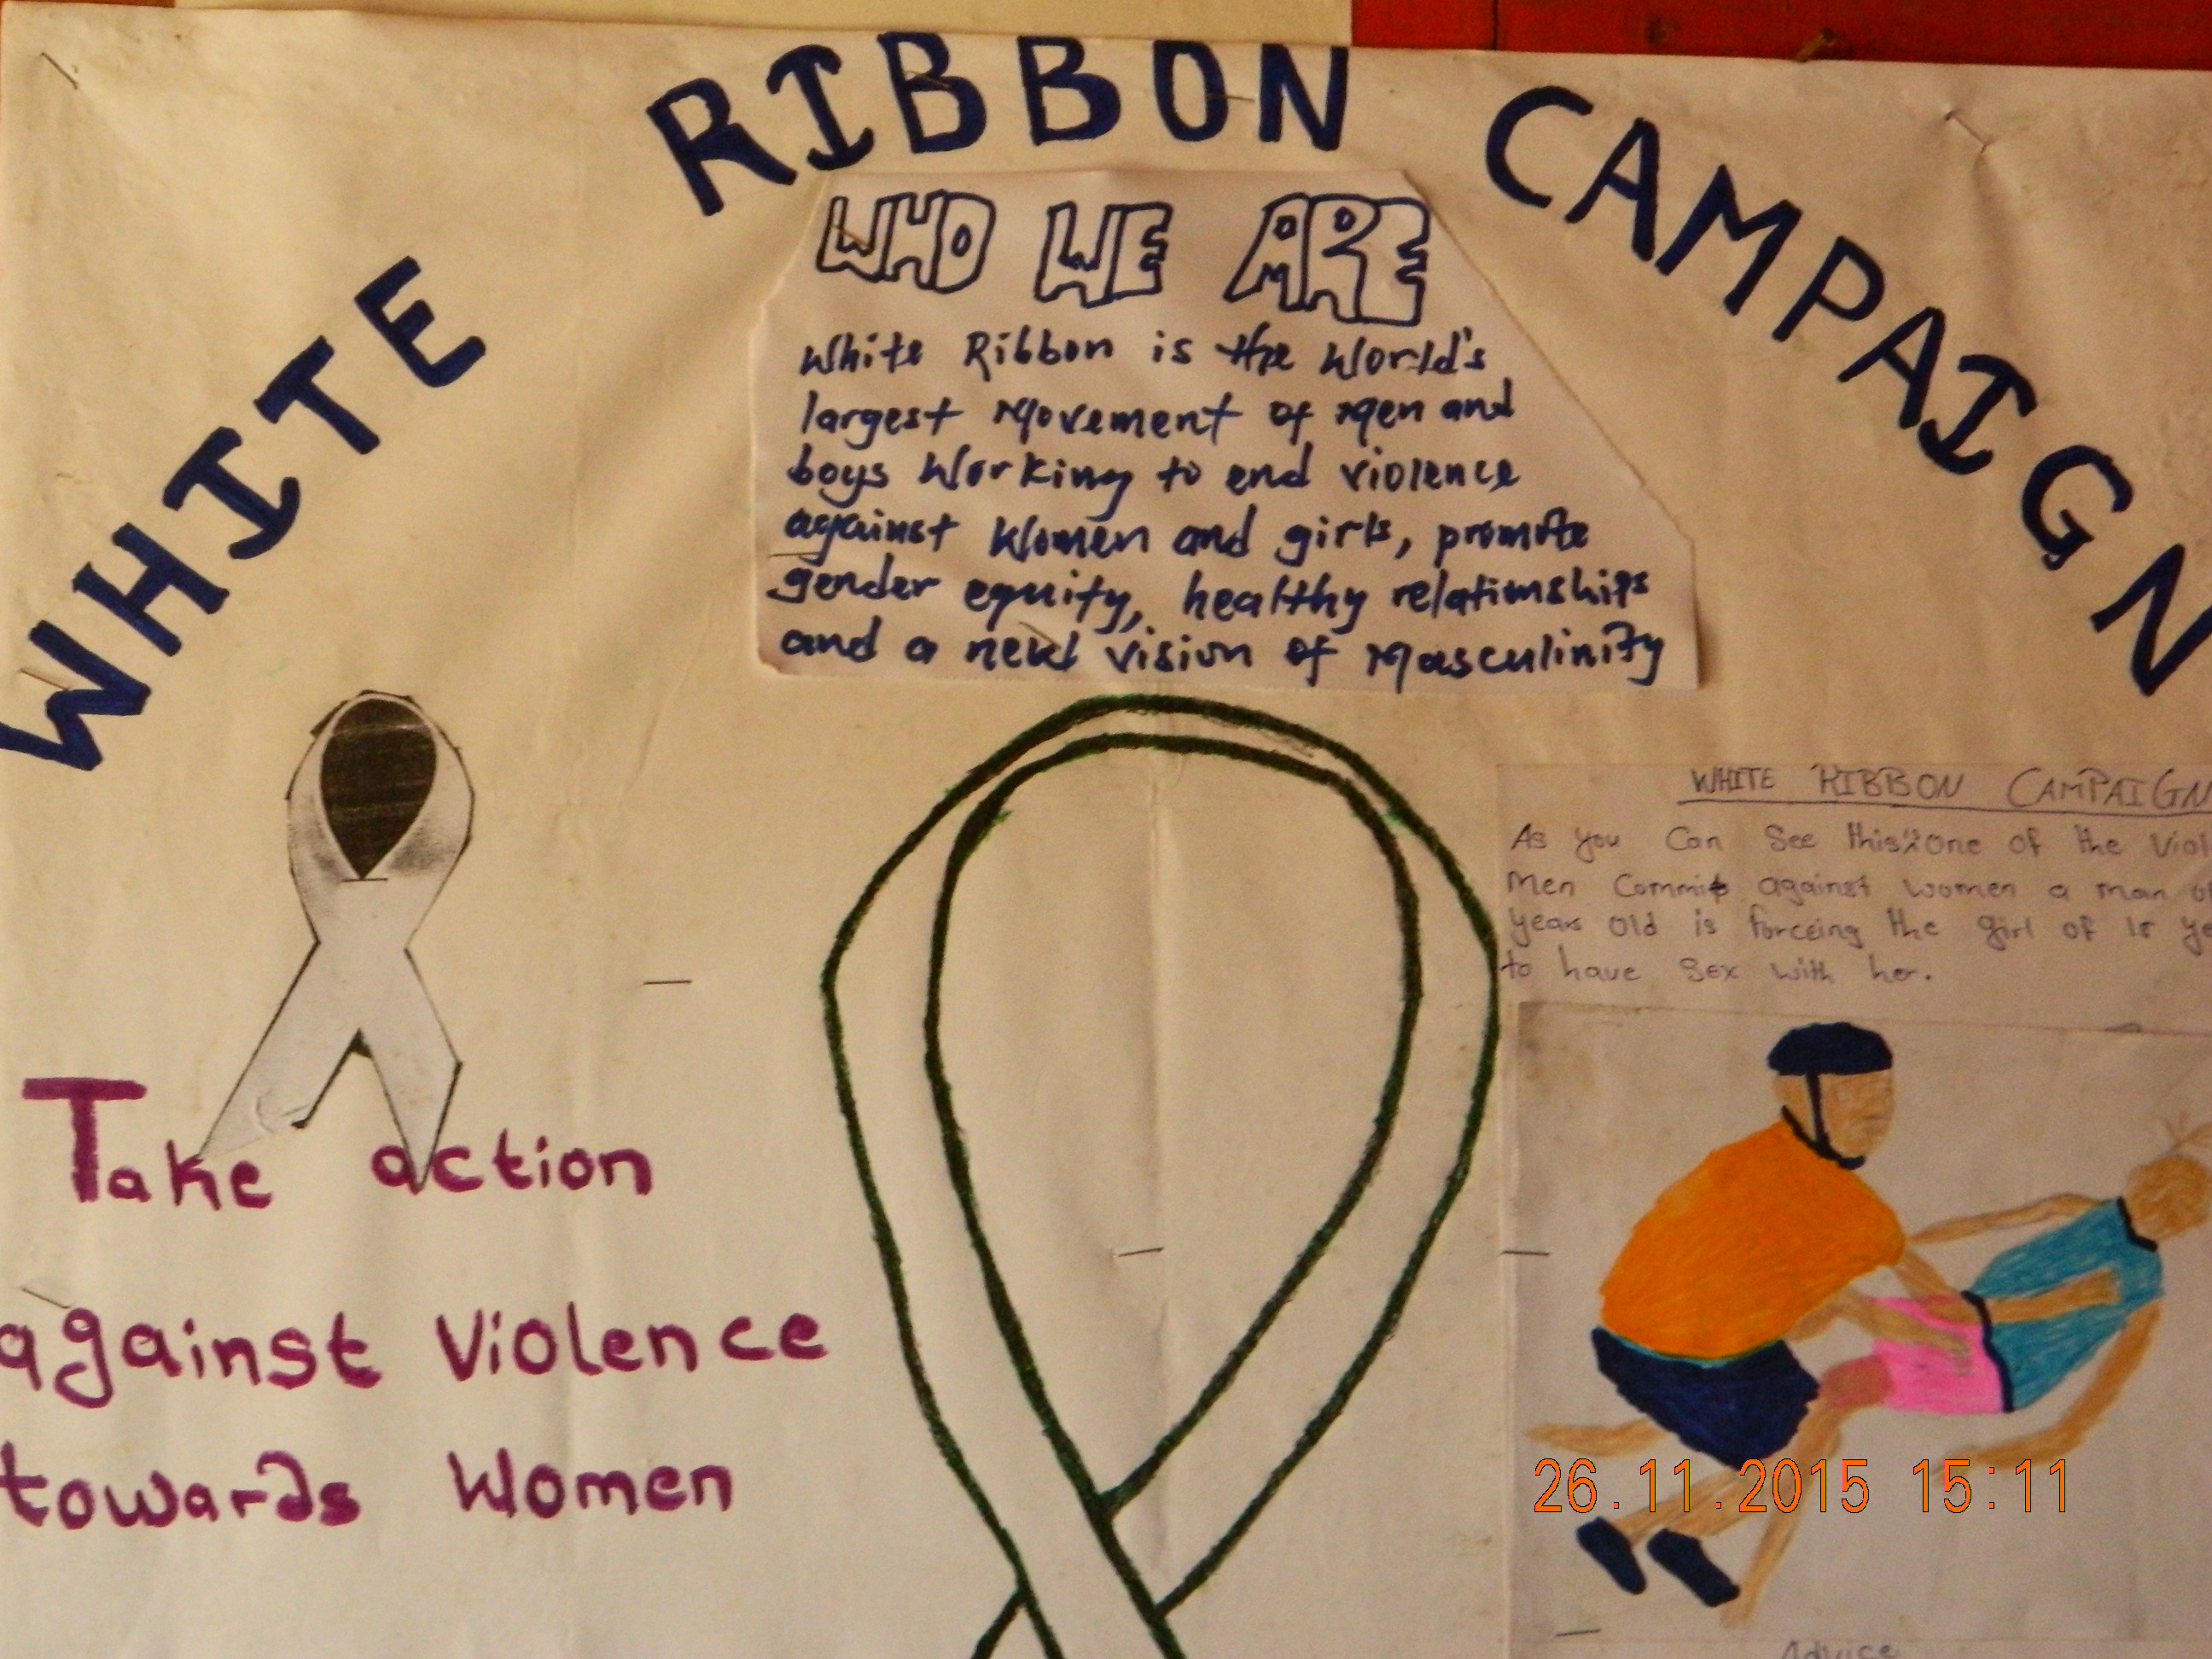 WHITE RIBBON CAMPAIGN
WHO WE ARE
White Ribbon is the World's
largest Movement of Men and
boys Working to end violence
against Women and girls, promote
gender equity, healthy relationships
and a new vision of Masculinity
WHITE RIBBON CAMPAIGN
As you Can See this is One of the
Men Commit against women a man
years old is forceing the girl of
to have Sex with her.
Take action
against Violence
towards Women
26.11.2015 15:11
Advice